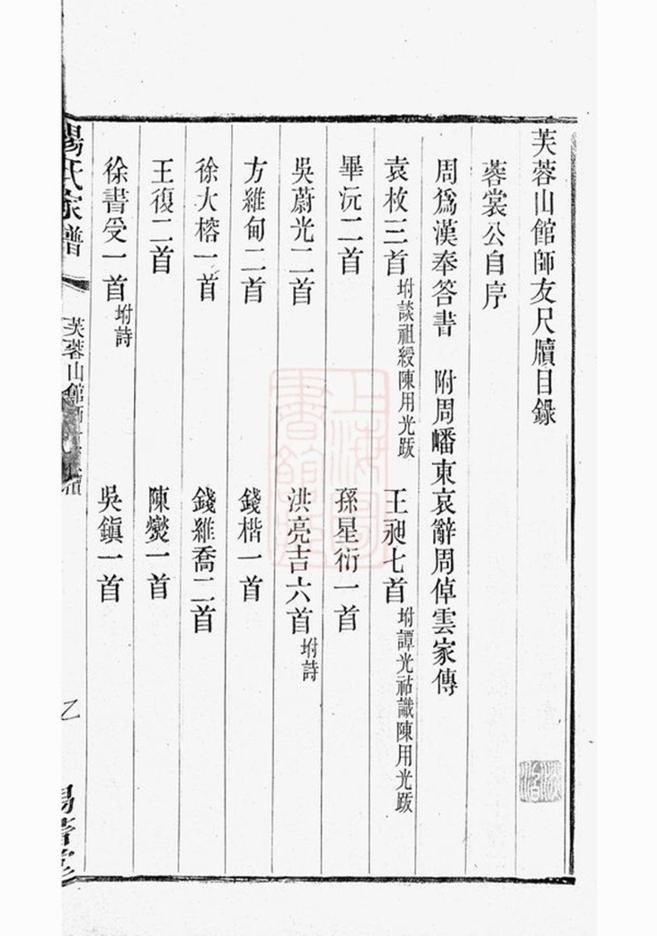 芙蓉山館師友尺牘目錄
蓉裳公自序
周爲漢奉答書 附周皤東哀辭周倬雲家傳
袁枚三首坿談祖綬陳用光跋 王昶七首坿譚光祜識陳用光跋
畢沅二首 孫星衍一首
吳蔚光二首 洪亮吉六首坿詩
方維甸二首 錢楷一首
徐大榕一首 錢維喬二首
王復二首 陳燮一首
徐書受一首坿詩 吳鎮一首
楊氏家譜 芙蓉山館師友尺牘
上海圖書館藏